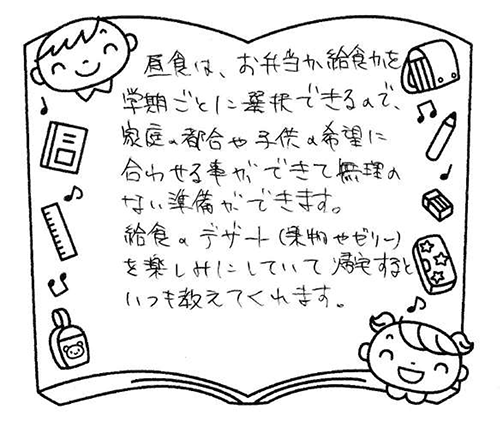 昼食は、お弁当か給食かを
学期ごとに選択できるので、
家庭の都合や子供の希望に
合わせる事ができて無理の
ない準備ができます。
給食のデザート(果物やゼリー)
を楽しみにしていて帰宅すると
いつも教えてくれます。